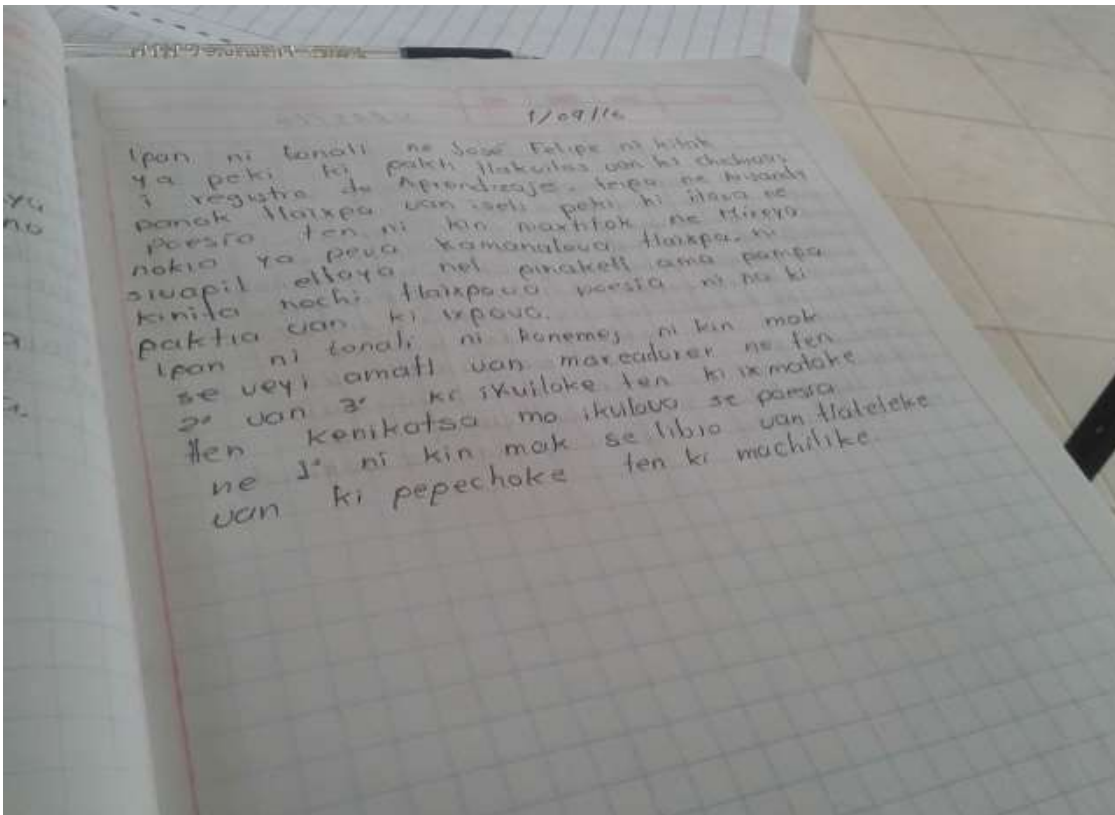 1/09/16
Ipan ni tonali ne José Felipe ni kitak
ya peki ki palek tlakuilos van ki chichivas
i registro de Aprendizaje. teipa ne
panok tlaixpa van iseli peki ki ilova ne
poesia ten ni kin maxhtok ne Mireya
nokia ya peva kamanalova tlaixpa. ni
sivapil eltoya nel pinaketl ama pampa
kinita nochi tlaixpova poesia ni na ki
paktia van ki ixpova.
Ipan ni tonali ni konemej ni kin mak
se veyi amatl van marcadores ne ten
2° van 3° ki ikuiloke ten ki ixmatoke
ten kenikatsa mo ikulova se poesia
ne 1° ni kin mak se libro van tlateleke
van ki pepechoke ten ki machilike